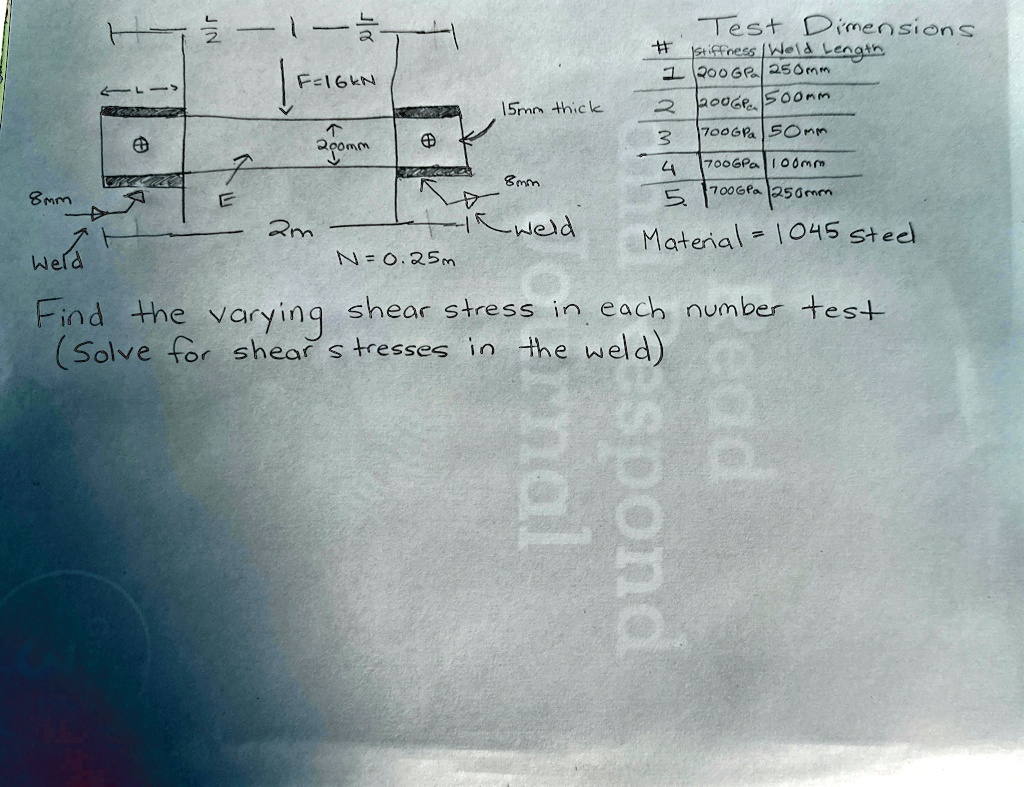 L/2 — 1 — L/2
F=16kN
← L →
15mm thick
⊕
200mm
⊕
8mm
E
8mm
2m
Weld
Weld
N = 0.25m
Test Dimensions
# Stiffness Weld Length
1 200GPa 250mm
2 200GPa 500mm
3 700GPa 50mm
4 700GPa 100mm
5. 700GPa 250mm
Material = 1045 steel
Find the varying shear stress in each number test
(Solve for shear stresses in the weld)
Read
and Respond
Journal